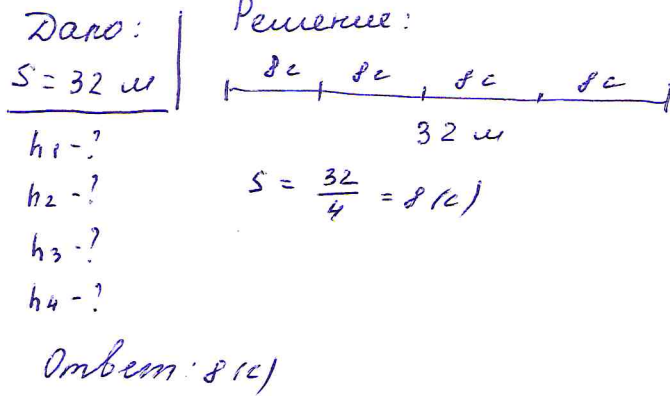 Дано:
S = 32 м
h1 - ?
h2 - ?
h3 - ?
h4 - ?
Решение:
8с 8с 8с 8с
32 м
S = 32/4 = 8 (с)
Ответ: 8 (с)